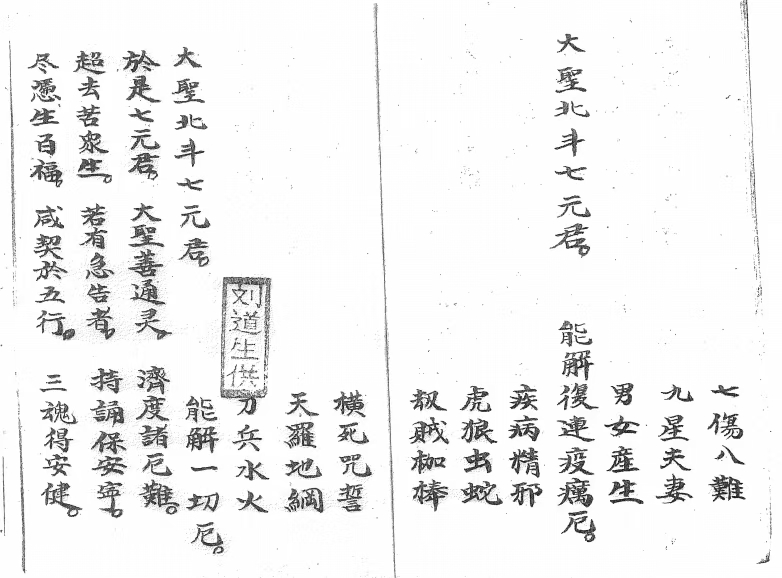 七傷八難
九星夫妻
男女產生
大聖北斗七元君。能解復連疫癘厄。
疾病精邪
虎狼虫蛇
劫賊枷棒
橫死咒誓
天羅地網
刀兵水火
刘道生供
大聖北斗七元君。能解一切厄。
於是七元君。大聖善通灵。濟度諸厄難。
超去苦衆生。若有急告者。持誦保安寧。
尽憑生百福。咸契於五行。三魂得安健。